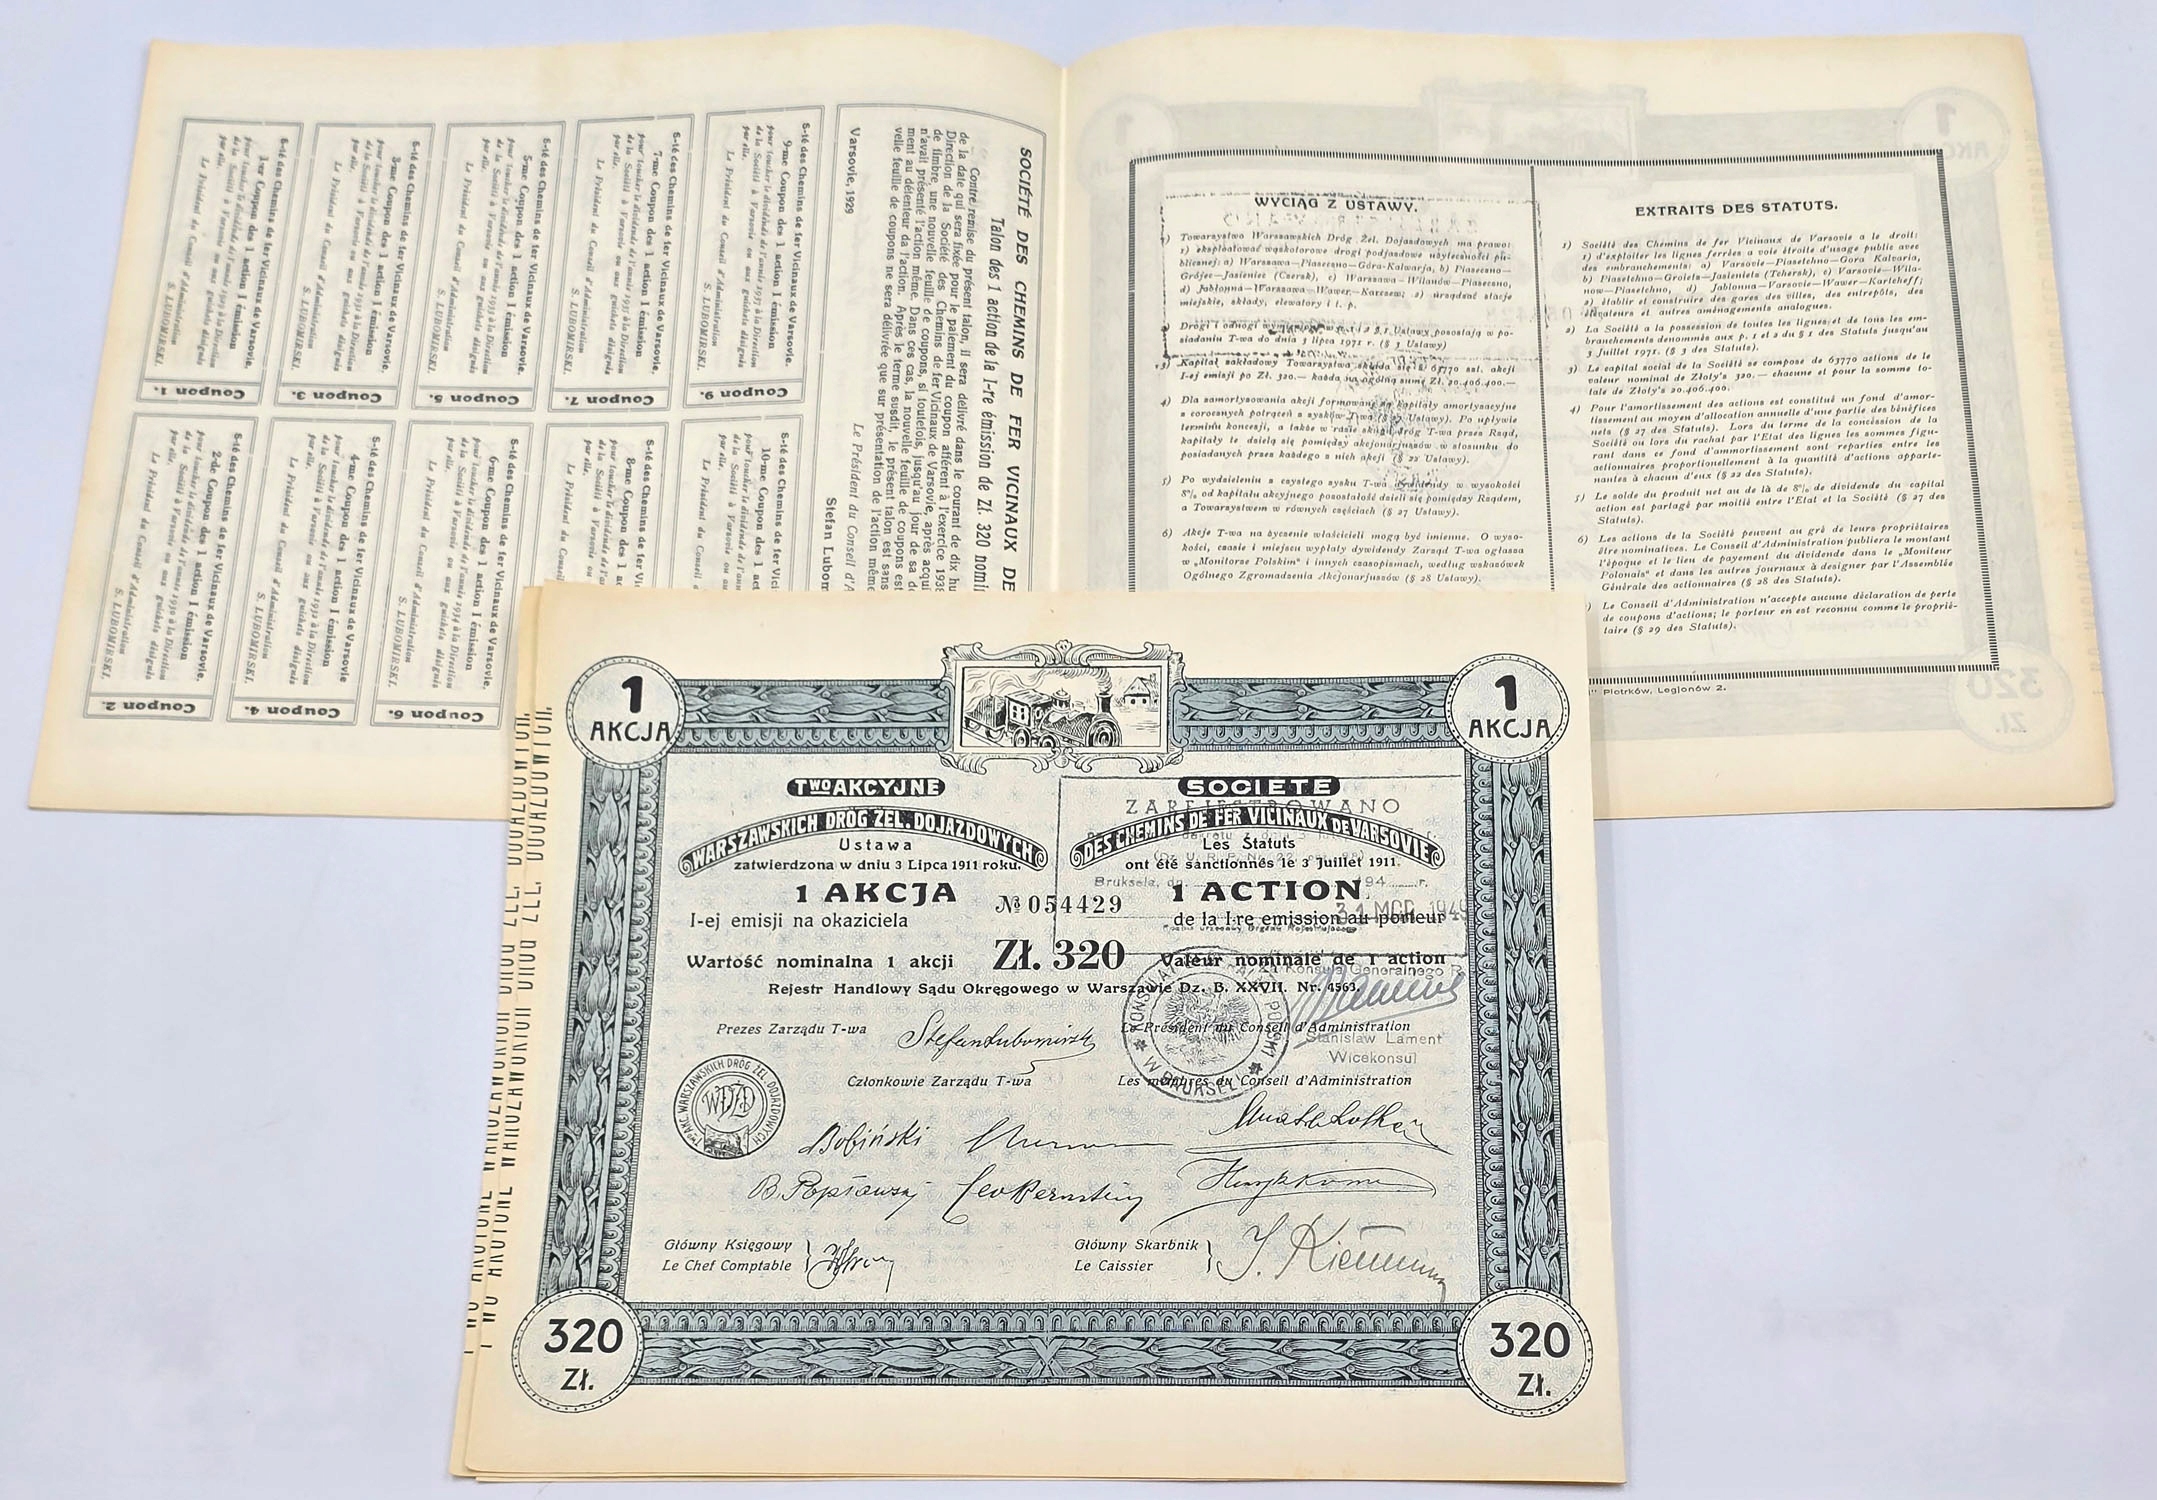 SOCIÉTÉ DES CHEMINS DE FER VICINAUX DE
Talon des 1 action de la I-re émission de Zł. 320 nomi
Contre remise du présent talon, il sera délivré dans le courant de dix hu
de la date qui sera fixée pour le paiement du coupon afférent à l'exercice 1938
Direction de la Société des Chemins de fer Vicinaux de Varsovie, après acqui
de timbre, une nouvelle feuille de coupons, si toutefois, jusqu'au jour de sa de
n'avait présenté l'action même. Dans ces cas, la nouvelle feuille de coupons est
ment au détenteur da l'action. Après le terme susdit, le présent talon est sans
velle feuille de coupons ne sera délivrée que sur présentation de l'action même
Varsovie, 1929
Le Président du Conseil d'A
Stefan Lubom
S-té des Chemins de fer Vicinaux de Varsovie.
1-er Coupon des 1 action I émission
pour toucher le dividende de l'année 1929 à la Direction
de la Société à Varsovie ou aux guichets désignés
par elle.
Le Président du Conseil d'Administration
S. LUBOMIRSKI.
Coupon 1.
S-té des Chemins de fer Vicinaux de Varsovie.
3-me Coupon des 1 action I émission
pour toucher le dividende de l'année 1931 à la Direction
de la Société à Varsovie ou aux guichets désignés
par elle.
Le Président du Conseil d'Administration
S. LUBOMIRSKI.
Coupon 3.
S-té des Chemins de fer Vicinaux de Varsovie.
5-me Coupon des 1 action I émission
pour toucher le dividende de l'année 1933 à la Direction
de la Société à Varsovie ou aux guichets désignés
par elle.
Le Président du Conseil d'Administration
S. LUBOMIRSKI.
Coupon 5.
S-té des Chemins de fer Vicinaux de Varsovie.
7-me Coupon des 1 action I émission
pour toucher le dividende de l'année 1935 à la Direction
de la Société à Varsovie ou aux guichets désignés
par elle.
Le Président du Conseil d'Administration
S. LUBOMIRSKI.
Coupon 7.
S-té des Chemins de fer Vicinaux de Varsovie.
9-me Coupon des 1 action I émission
pour toucher le dividende de l'année 1937 à la Direction
de la Société à Varsovie ou aux guichets désignés
par elle.
Le Président du Conseil d'Administration
S. LUBOMIRSKI.
Coupon 9.
S-té des Chemins de fer Vicinaux de Varsovie.
2-de Coupon des 1 action I émission
pour toucher le dividende de l'année 1930 à la Direction
de la Société à Varsovie ou aux guichets désignés
par elle.
Le Président du Conseil d'Administration
S. LUBOMIRSKI.
Coupon 2.
S-té des Chemins de fer Vicinaux de Varsovie
4-me Coupon des 1 action I émission
pour toucher le dividende de l'année 1932 à la Direction
de la Société à Varsovie ou aux guichets désignés
par elle.
Le Président du Conseil d'Administration
S. LUBOMIRSKI.
Coupon 4.
S-té des Chemins de fer Vicinaux de Varsovie.
6-me Coupon des 1 action I émission
pour toucher le dividende de l'année 1934 à la Direction
de la Société à Varsovie ou aux guichets désignés
par elle.
Le Président du Conseil d'Administration
S. LUBOMIRSKI.
Coupon 6.
S-té des Chemins de fer Vic
8-me Coupon des 1 ac
pour toucher le dividende de l'anné
de la Société à Varsovie ou
par elle.
Le Président du Conseil
S-té des Chemins de fer Vic
10-me Coupon des 1 act
pour toucher le dividende de l'ann
de la Société à Varsovie ou a
par elle.
Le Président du Conseil
WYCIĄG Z USTAWY.
1) Towarzystwo Warszawskich Dróg Żel. Dojazdowych ma prawo:
1) eksploatować wąskotorowe drogi podjazdowe użyteczności pu-
blicznej: a) Warszawa—Piaseczno—Góra-Kalwarja, b) Piaseczno—
Grójec—Jasieniec (Czersk), c) Warszawa—Wilanów—Piaseczno,
d) Jabłonna—Warszawa—Wawer—Karczew; 2) urządzać stacje
miejskie, składy, elewatory i t. p.
Drogi i odnogi wymienione w p. 1 i 2 § 1 Ustawy pozostają w po-
siadaniu T-wa do dnia 3 lipca 1971 r. (§ 3 Ustawy)
3) Kapitał zakładowy Towarzystwa składa się z 63770 szt. akcji
I-ej emisji po Zł. 320.— każda na ogólną sumę Zł. 20.406.400.—
4) Dla zamortyzowania akcji formowane są kapitały amortyzacyjne
z corocznych potrąceń z zysków T-wa (§ 27 Ustawy). Po upływie
terminu koncesji, a także w razie skupu dróg T-wa przez Rząd,
kapitały te dzielą się pomiędzy akcjonarjuszów w stosunku do
posiadanych przez każdego z nich akcji (§ 22 Ustawy).
5) Po wydzieleniu z czystego zysku T-wa dywidendy w wysokości
8% od kapitału akcyjnego pozostałość dzieli się pomiędzy Rządem,
a Towarzystwem w równych częściach (§ 27 Ustawy).
6) Akcje T-wa na życzenie właścicieli mogą być imienne. O wyso-
kości, czasie i miejscu wypłaty dywidendy Zarząd T-wa ogłasza
w „Monitorze Polskim" i innych czasopismach, według wskazówek
Ogólnego Zgromadzenia Akcjonarjuszów (§ 28 Ustawy).
EXTRAITS DES STATUTS.
1) Société des Chemins de fer Vicinaux de Varsovie a le droit:
1) d'exploiter les lignes ferrées a voie étroite d'usage public avec
des embranchements: a) Varsovie—Piasetchno—Gora Kalvaria,
b) Piasetchno—Groiets—Jasieniets (Tchersk), c) Varsovie—Wila-
now—Piasetchno, d) Jablonna—Varsovie—Wawer—Kartcheff;
2) établir et construire des gares des villes, des entrepôts, des
élévateurs et autres aménagements analogues.
2) La Société a la possession de toutes les lignes et de tous les em-
branchements denommés aux p. 1 et 2 du § 1 des Statuts jusqu'au
3 Juillet 1971. (§ 3 des Statuts).
3) Le capital social de la Société se compose de 63770 actions de le
valeur nominal de Złoty's 320.— chacune et pour la somme to-
tale de Złoty's 20.406.400.
4) Pour l'amortissement des actions est constitué un fond d'amor-
tissement au moyen d'allocation annuelle d'une partie des bénéfices
nets (§ 27 des Statuts). Lors du terme de la concession de la
Société ou lors du rachat par l'Etat des lignes les sommes figu-
rant dans ce fond d'ammortissement sont reparties entre les
actionnaires proportionellement à la quantité d'actions apparte-
nantes à chacun d'eux (§ 22 des Statuts).
5) Le solde du produit net au de là de 8% de dividende du capital
action est partagé par moitié entre l'Etat et la Société (§ 27 des
Statuts).
6) Les actions de la Société peuvent au gré de leurs propriétaires
être nominatives. Le Conseil d'Administration publiera le montant
l'époque et le lieu de payement du dividende dans le „Moniteur
Polonais" et dans les autres journaux à designer par l'Assemblée
Générale des actionnaires (§ 28 des Statuts).
) Le Conseil d'Administration n'accepte aucune déclaration de perte
de coupons d'actions; le porteur en est reconnu comme le proprié-
taire (§ 29 des Statuts).
" Piotrków, Legionów 2.
1
AKCJA
1
AKCJA
TWO AKCYJNE
WARSZAWSKICH DRÓG ŻEL. DOJAZDOWYCH
Ustawa
zatwierdzona w dniu 3 Lipca 1911 roku.
1 AKCJA
I-ej emisji na okaziciela
№ 054429
SOCIETE
DES CHEMINS DE FER VICINAUX DE VARSOVIE
Les Statuts
ont été sanctionnés le 3 Juillet 1911.
1 ACTION
de la I-re emission au porteur
ZAREJESTROWANO
Bruksela, dn. 194 r.
31 1949
Wartość nominalna 1 akcji
Zł. 320
Valeur nominale de 1 action
Rejestr Handlowy Sądu Okręgowego w Warszawie Dz. B. XXVII. Nr. 4563.
Konsula Generalnego R.
Stanisław Lament
Wicekonsul
W BRUKSELI
Prezes Zarządu T-wa
Stefan Lubomirski
Le Président du Conseil d'Administration
Członkowie Zarządu T-wa
Les membres du Conseil d'Administration
T-WO AKC. WARSZAWSKICH DRÓG ŻEL. DOJAZDOWYCH
WDŻD
Bobiński
B. Popławski
Leo Bernstein
Główny Księgowy
Le Chef Comptable
Główny Skarbnik
Le Caissier
320
Zł.
320
Zł.